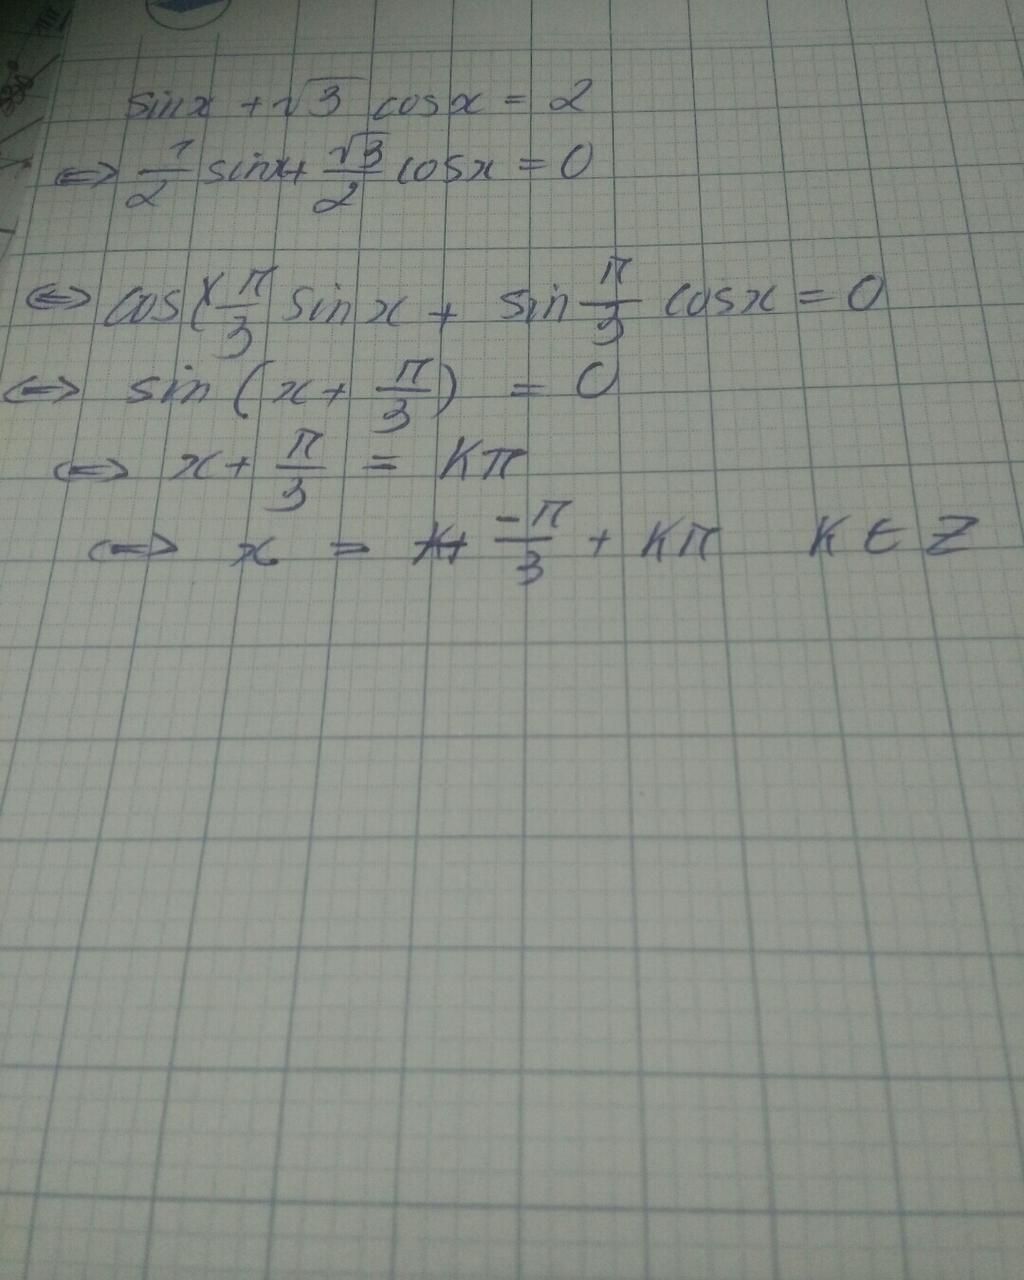 sinx + √3 cosx = 2
⇔ 1/2 sinx + √3/2 cosx = 0
⇔ cos π/3 sinx + sin π/3 cosx = 0
⇔ sin (x + π/3) = 0
⇔ x + π/3 = Kπ
⇔ x = -π/3 + Kπ K ∈ Z